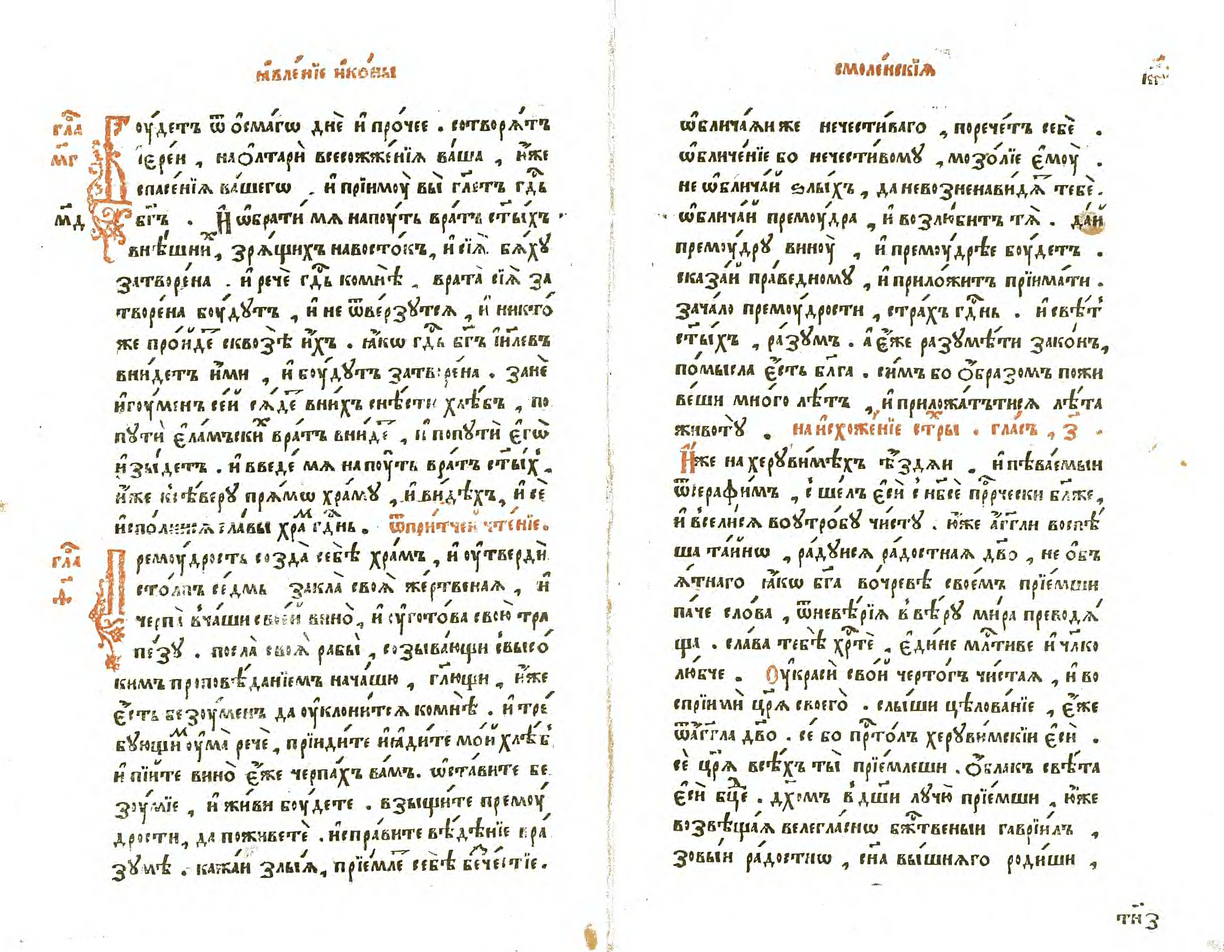 ꙗ҆вле́нїе и҆ко́ны
гла́
м҃г
Боу́детъ ѿ ѻ҆сма́гѡ днѐ и҆ про́чее . сотворѧ́тъ
і҆ере́и , на ѻ҆лтарѝ всесожже́нїѧ ва́ша , и҆́же
спасе́нїѧ ва́шегѡ . и҆ прїимоу́ вы̀ гл҃етъ гд҇ь
м҃д
бг҃ъ . И҆ ѡ҆брати́ мѧ на поу́ть вра́тъ ст҃ы́хъ
внѣ́шни́х , зрѧ́щихъ на восто́къ , и҆ сїѧ̀ бѧ́хꙋ
затворе́на . и҆ речѐ гд҇ь ко мнѣ̀ . врата̀ сїѧ̀ за
творе́на боу́дꙋтъ , и҆ не ѿве́рзꙋтсѧ , и҆ никто́
же про́йде сквозѣ̀ и҆́хъ . ꙗ҆́кѡ гд҇ь бг҃ъ і҆и҃левъ
вни́детъ и҆́ми , и҆ боу́дꙋтъ затворе́на . занѐ
и҆гоу́менъ се́й сѧ́де в ни́хъ снѣ́сти хлѣ́бъ , по
пꙋтѝ є҆ла́мъски вра́тъ вни́де , и҆ по пꙋтѝ є҆гѡ̀
и҆зы́детъ . и҆ введе́ мѧ на поу́ть вра́тъ ст҃ы́х ,
и҆́же к сѣ́верꙋ прѧ́мѡ хра́мꙋ , и҆ ви́дѣхъ , и҆ сѐ
и҆спо́лнисѧ сла́вы хра́м гд҇нь . ѿ при́тчей чте́нїе .
гла́
ѳ҃
Премоу́дрость созда̀ себѣ̀ хра́мъ , и҆ оу҆твердѝ
сто́лпъ се́дмь закла̀ своѧ̀ же́ртвенаѧ , и҆
черпа̀ в ча́ши свое́й вино̀ , и҆ оу҆гото́ва свою̀ тра
пе́зꙋ . посла̀ своѧ̀ рабы̀ , созыва́ющи свысо́
кимъ проповѣ́данїемъ на ча́шю , гл҃ющи , и҆́же
є҆́сть безоу́менъ да оу҆клони́тсѧ ко мнѣ̀ . и҆ тре́
бꙋющи́м оу҆ма̀ речѐ , прїиди́те и҆ ꙗ҆ди́те мо́й хлѣ́бъ
и҆ пі́йте вино̀ є҆́же черпа́хъ ва́мъ . ѡ҆ста́вите бе
зоу́мїе , и҆ жи́ви боу́дете . взыщи́те премоу́
дрости , да пожи́вете . и҆спра́вите вѣ́дѣнїе в ра́
зꙋмѣ . кажа́й злы́ѧ , прїе́млет себѣ̀ бече́стїе .
смоле́нскїѧ
ѡ҆блича́ѧи же нечести́ваго , порече́тъ себѐ .
ѡ҆бличе́нїе бо нечести́вомꙋ , мозо́лїе є҆моу̀ .
не ѡ҆блича́й ѕлы́хъ , да не возненави́дѧт тебѐ .
ѡ҆блича́й премоу́дра , и҆ возлю́битъ тѧ̀ . да́й
премоу́дрꙋ виноу̀ , и҆ премоу́дрѣе боу́детъ .
сказа́й пра́ведномꙋ , и҆ приложи́тъ прїима́ти .
зача́ло премоу́дрости , стра́хъ гд҇нь . и҆ свѣ́т
ст҃ы́хъ , ра́зꙋмъ . а є҆́же разꙋмѣ́ти зако́нъ ,
по́мысла є҆́сть бл҃га . си́мъ бо ѻ҆́бразомъ пожи
ве́ши мно́го лѣ́тъ , и҆ приложа́тътисѧ лѣ́та
животꙋ̀ . на и҆схоже́нїе ст҇ры . гла́съ , з҃ .
И҆́же на херꙋви́мѣхъ ѣ҆́здѧи . и҆ пѣва́емыи
ѿ серафи́мъ , сше́лъ є҆сѝ с нб҃сѐ прⷪ҇рчески бл҃же ,
и҆ всели́сѧ во оу҆тро́бꙋ чи́стꙋ . ю҆́же а҆́гг҃ли воспѣ́
ша та́йнѡ , ра́дꙋисѧ ра́достнаѧ дв҃о , не ѻ҆бъ
ѧ҆́тнаго ꙗ҆́кѡ бг҃а во чре́вѣ свое́мъ прїе́мши
па́че сло́ва , ѿ невѣ́рїѧ в вѣ́рꙋ ми́ра преводѧ́
ща . сла́ва тебѣ̀ хр҇тѐ , є҆ди́не мл҇тиве и҆ чл҃ко
лю́бче . Оу҆красѝ сво́й черто́гъ чи́стаѧ , и҆ во
спрїимѝ цр҃ѧ̀ своего̀ . слы́ши цѣлова́нїе , є҆́же
ѿ а҆́гг҃ла дв҃о . се́ бо пр҇то́лъ херꙋви́мскїи є҆сѝ .
сѐ цр҃ѧ̀ всѣ́хъ ты̀ прїе́млеши . ѻ҆́блак свѣ́та
є҆сѝ бц҃е . дх҃омъ в дш҃и лꙋчю̀ прїе́мши , ю҆́же
возвѣща́ѧ велегла́снѡ бж҇твеныи гаврїи́лъ ,
зовы́и ра́достнѡ , сн҃а вы́шнѧго роди́ши ,
тн҃з